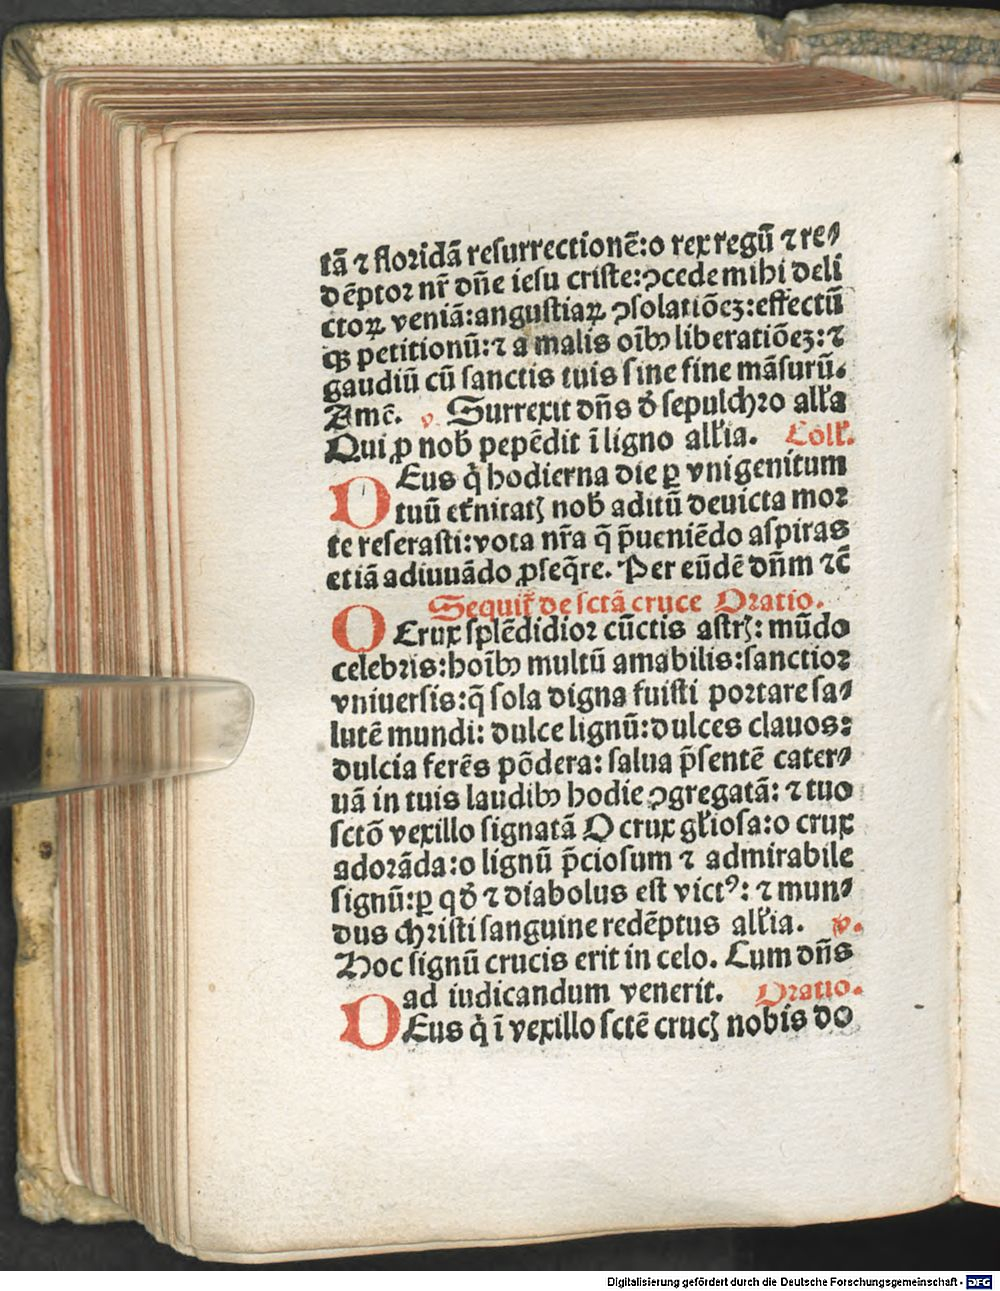 tā ⁊ floridā resurrectionē: o rex regū ⁊ re⸗
dēptor nr̄ dn̄e iesu criste: ꝯcede mihi deli
ctoꝝ veniā: angustiaꝝ ꝯsolatiōez: effectū
qꝫ petitionū: ⁊ a malis oībꝰ liberatiōez: ⁊
gaudiū cū sanctis tuis sine fine māsurū.
Amē. v. Surrexit dn̄s d̓ sepulchro all'a
Qui ꝓ nob̓ pepēdit ī ligno all'ia. Coll'.
DEus q̇ hodierna die ꝑ vnigenitum
tuū et'nitatꝭ nob̓ aditū deuicta mor
te reserasti: vota nr̄a q̄ p̄ueniēdo aspiras
etiā adiuuādo ꝓseq̄re. Per eūdē dn̄m ⁊c̄
Sequit' de sctā cruce Oratio.
O Crux splēdidior cūctis astrꝭ: mūdo
celebris: hoībꝰ multū amabilis: sanctior
vniuersis: q̄ sola digna fuisti portare sa⸗
lutē mundi: dulce lignū: dulces clauos:
dulcia ferēs pōdera: salua p̄sentē cater⸗
uā in tuis laudibꝰ hodie ꝯgregatā: ⁊ tuo
sctō vexillo signatā O crux gl'iosa: o crux
adorāda: o lignū p̄ciosum ⁊ admirabile
signū: ꝑ qd̓ ⁊ diabolus est victꝰ: ⁊ mun⸗
dus christi sanguine redēptus all'ia. v.
Hoc signū crucis erit in celo. Cum dn̄s
ad iudicandum venerit. Oratio.
DEus q̇ ī vexillo sctē crucꝭ nobis do
Digitalisierung gefördert durch die Deutsche Forschungsgemeinschaft - DFG